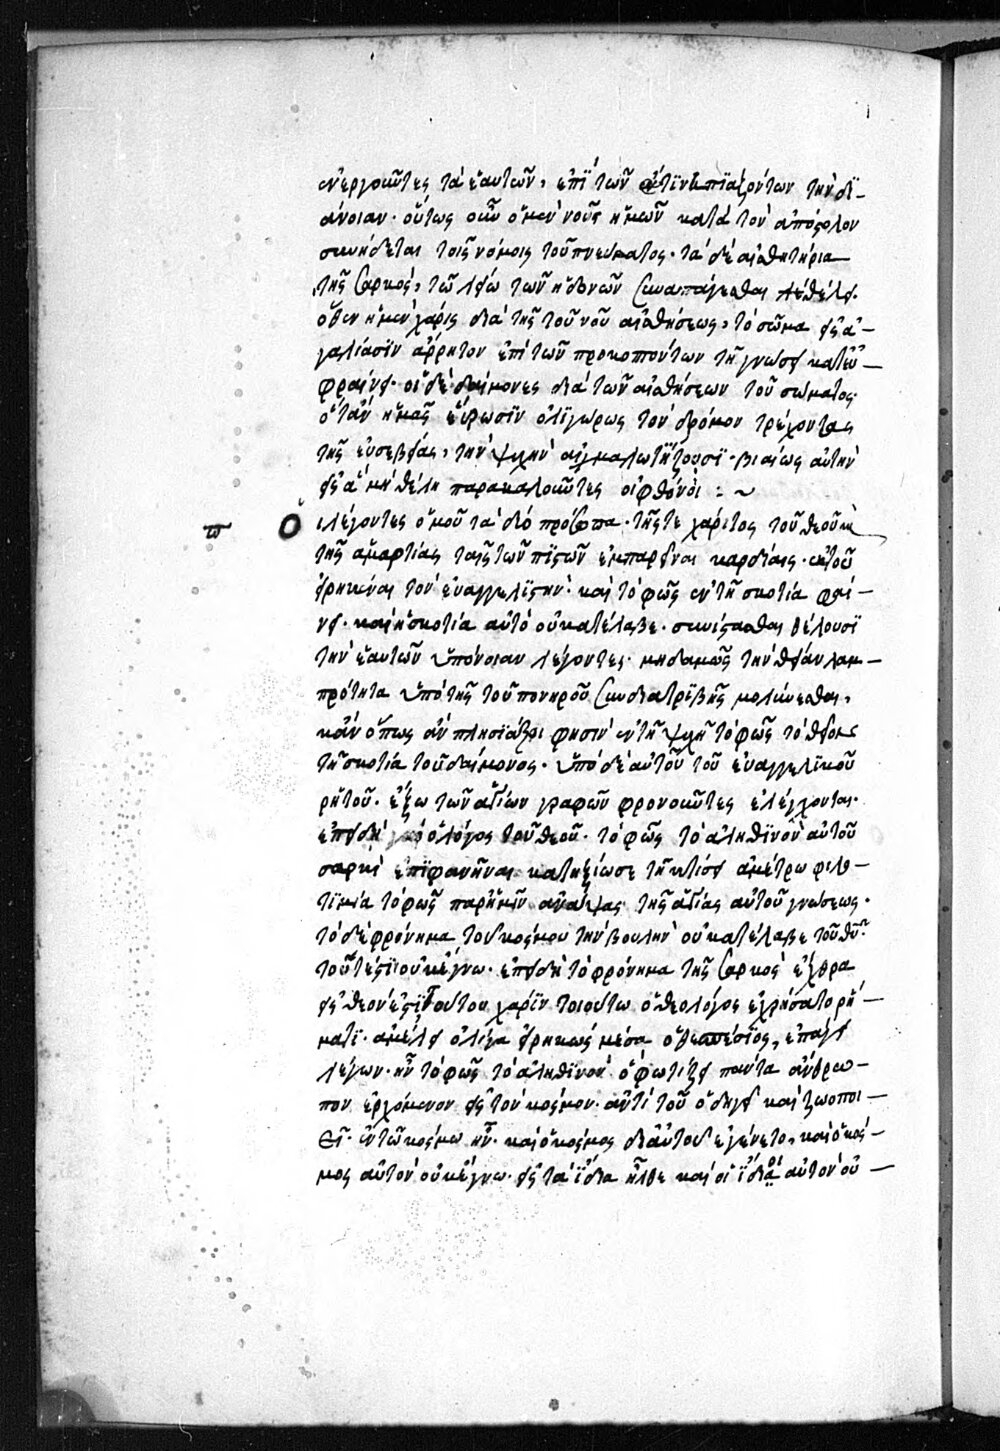 ἐνεργοῦντες τὰ ἑαυτῶν, ἐπὶ τῶν τὴν δι-
άνοιαν· οὕτως οὖν ὁ μὲν νοῦς ἡμῶν κατὰ τὸν ἀπόστολον
συνήδεται τοῖς νόμοις τοῦ πνεύματος· τὰ δὲ αἰσθητήρια
τῆς σαρκὸς, τῶ λείω τῶν ἡδονῶν συναπάγεσθαι θέλει·
ὅθεν ἡ μὲν χάρις διὰ τῆς τοῦ νοῦ αἰσθήσεως, τὸ σῶμα εἰς ἀ-
γαλίασιν ἄρρητον ἐπὶ τῶν προκοπτόντων τῆ γνώσει κατευ-
φραίνει· οἱ δὲ δαίμονες διὰ τῶν αἰσθήσεων τοῦ σώματος
ὅταν ἡμᾶς εὕρωσιν ὀλιγώρως τὸν δρόμον τρέχοντας
τῆς εὐσεβείας, τὴν ψυχὴν αἰχμαλωτίζουσι· βιαίως αὐτὴν
εἰς ἃ μὴ θέλη παρακαλοῦντες οἱ φθόνοι :~
ϖ Οἱ λέγοντες ὁμοῦ τὰ δύο πρόσωπα· τῆς τε χάριτος τοῦ θεοῦ κὶ
τῆς ἁμαρτίας ταῖς τῶν πιστῶν ἐμπαρεῖναι καρδίαις· ἐκ τοῦ
εἰρηκέναι τὸν εὐαγγελιστὴν· καὶ τὸ φῶς ἐν τῆ σκοτία φαί-
νει· καὶ ἡ σκοτία αὐτὸ οὐ κατέλαβε· συνίστασθαι θέλουσι
τὴν ἑαυτῶν ὑπόνοιαν λέγοντες· μηδαμῶς τὴν θείαν λαμ-
πρότητα ὑπὸ τῆς τοῦ πονηροῦ συνδιατριβῆς μολύνεσθαι,
κἂν ὅπως ἂν πλησιάζοι φησὶν ἐν τῆ ψυχῆ τὸ φῶς τὸ θεῖον
τῆ σκοτία τοῦ δαίμονος· ὑπὸ δὲ αὐτοῦ τοῦ εὐαγγελικοῦ
ρητοῦ· ἔξω τῶν ἁγίων γραφῶν φρονοῦντες ἐλέγχονται·
ἐπειδὴ γὰρ ὁ λόγος τοῦ θεοῦ· τὸ φῶς τὸ ἀληθινὸν αὐτοῦ
σαρκὶ ἐπιφανῆναι κατηξίωσε τῆ κτίσει ἀμέτρω φιλο-
τιμία τὸ φῶς παρ' ἡμῖν ἀνάψας τῆς ἁγίας αὐτοῦ γνώσεως·
τὸ δὲ φρόνημα τοῦ κόσμου τὴν βουλὴν οὐ κατέλαβε τοῦ θῦ·
τοῦτέστι οὐκ ἔγνω· ἐπειδὴ τὸ φρόνημα τῆς σαρκὸς ἔχθρα
εἰς θεόν ἐστι τούτου χάριν τοιούτω ὁ θεολόγος ἐχρήσατο ρή-
ματι· ἀμέλει ὀλίγα εἰρηκὼς μέσα ὁ θεσπέσιος, ἐπάγει
λέγων· ἦν τὸ φῶς τὸ ἀληθινὸν ὃ φωτίζει πάντα ἄνθρω-
πον ἐρχόμενον εἰς τὸν κόσμον· ἀντὶ τοῦ ὁδηγεῖ καὶ ζωοποι-
εῖ· ἐν τῶ κόσμω ἦν· καὶ ὁ κόσμος δι αὐτοῦ ἐγένετο, καὶ ὁ κόσ-
μος αὐτὸν οὐκ ἔγνω· εἰς τὰ ἴδια ἦλθε καὶ οἱ ἴδιοι αὐτὸν οὐ